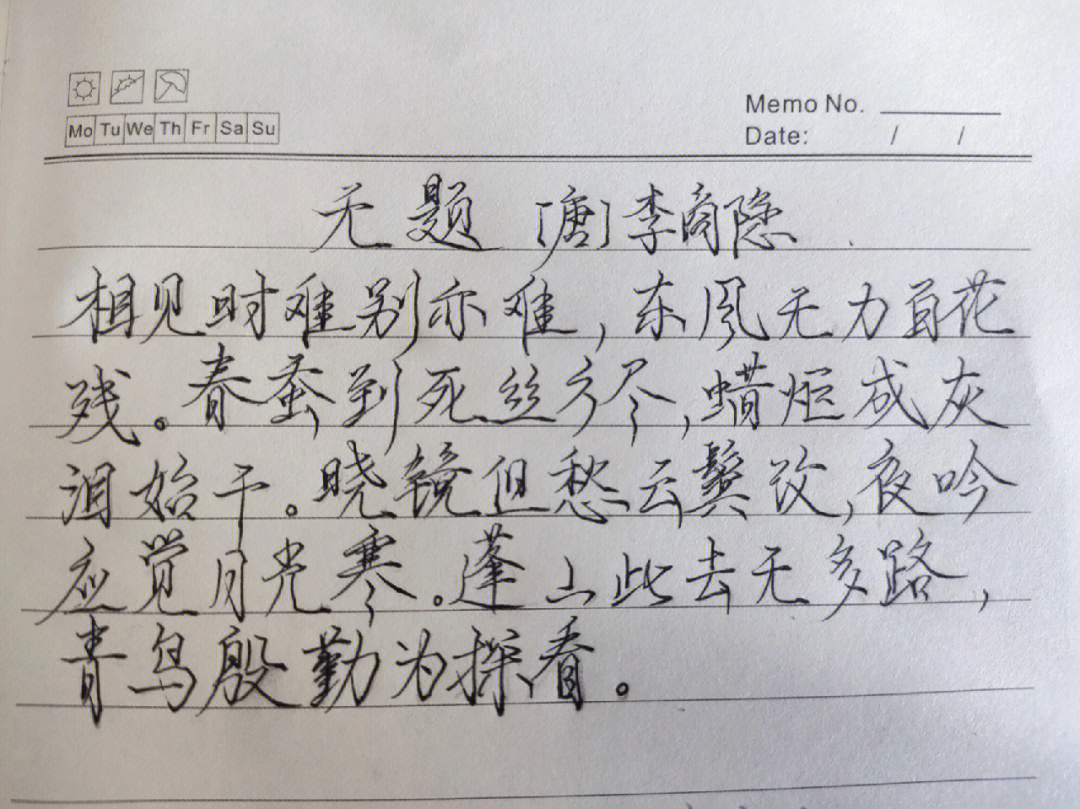 Mo Tu We Th Fr Sa Su
Memo No.
Date: / /
无题 [唐]李商隐
相见时难别亦难,东风无力百花
残。春蚕到死丝方尽,蜡炬成灰
泪始干。晓镜但愁云鬓改,夜吟
应觉月光寒。蓬山此去无多路,
青鸟殷勤为探看。